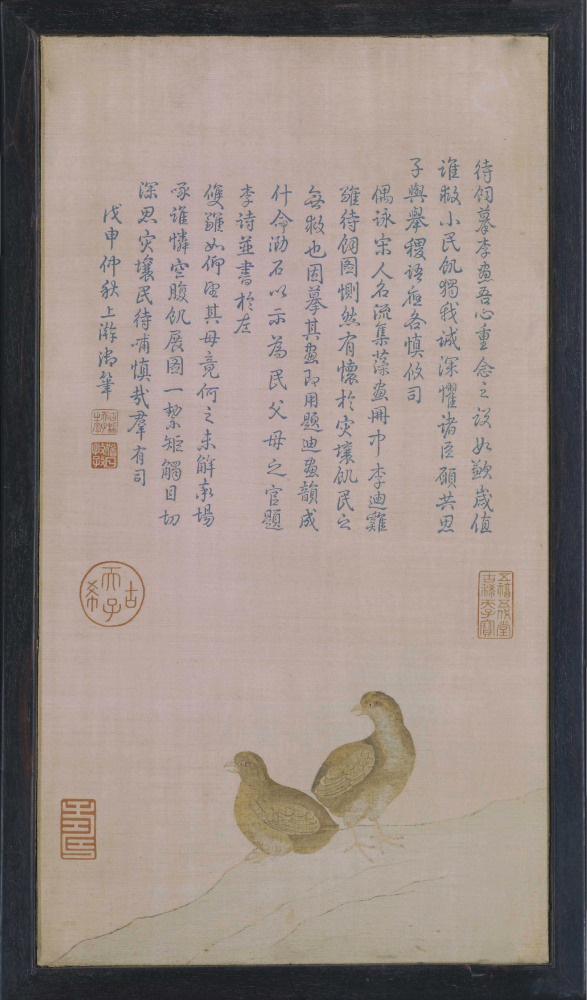 待飼摹李畫吾心重念之設如歉歲值
誰救小民飢獨我誠深懼諸臣願共思
子輿舉稷語應各慎攸司
偶詠宋人名流集藻畫冊中李迪雞
雛待飼圖惻然有懷於災壤飢民之
無救也因摹其畫即用題迪畫韻成
什命泐石以示為民父母之官題
李詩並書於左
雙雛如仰望其母竟何之未解索場
啄誰憐空腹飢展圖一絜矩觸目切
深思災壤民待哺慎哉羣有司
戊申仲秋上澣御筆
五福五代堂
古稀天子寶
古希天子